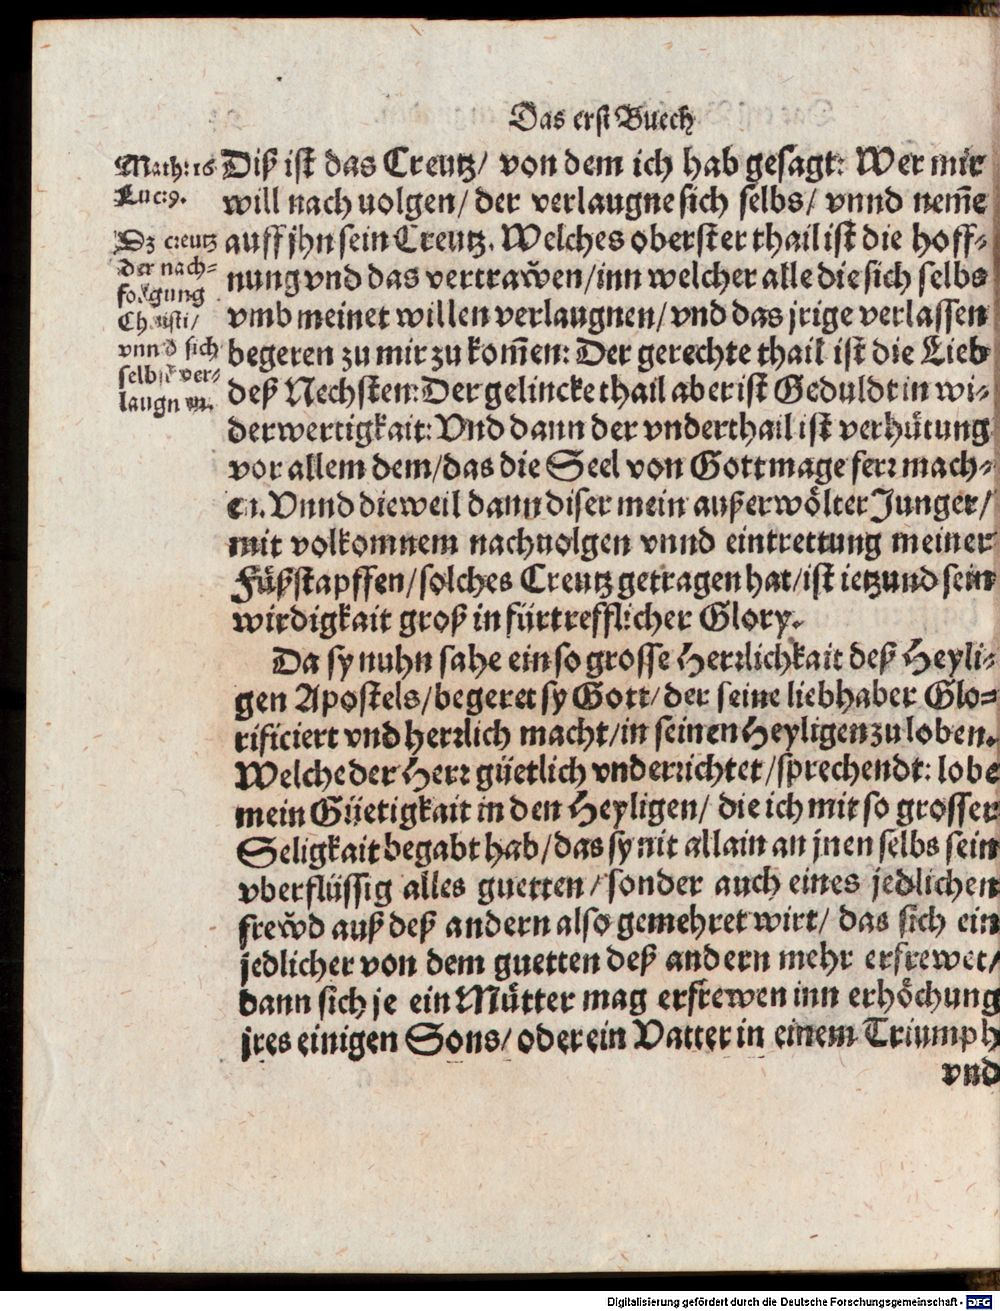 Das erst Buech
Math: 16
Luc: 9.
Dz creutz
der nach-
folgung
Christi/
vnnd sich
selbst ver-
laugnen.
Diß ist das Creutz/ von dem ich hab gesagt: Wer mir
will nach uolgen/ der verlaugne sich selbs/ vnnd nem̃e
auff jhn sein Creutz. Welches oberster thail ist die hoff-
nung vnd das vertraẘen/ inn welcher alle die sich selbs
vmb meinet willen verlaugnen/ vnd das jrige verlassen
begeren zu mir zu kom̃en: Der gerechte thail ist die Lieb
deß Nechsten: Der gelincke thail aber ist Geduldt in wi-
derwertigkait: Vnd dann der vnderthail ist verhütung
vor allem dem/ das die Seel von Gott mage ferr mach-
en. Vnnd dieweil dann diser mein außerwölter Junger/
mit volkomnem nachuolgen vnnd eintrettung meiner
Füßstapffen/ solches Creutz getragen hat/ ist ietzund sein
wirdigkait groß in fürtrefflicher Glory.
Da sy nuhn sahe ein so grosse Herrlichkait deß Heyli-
gen Apostels/ begeret sy Gott/ der seine liebhaber Glo-
rificiert vnd herrlich macht/ in seinen Heyligen zu loben.
Welche der Herr güetlich vnderrichtet/ sprechendt: lobe
mein Güetigkait in den Heyligen/ die ich mit so grosser
Seligkait begabt hab/ das sy nit allain an jnen selbs sein
vberflüssig alles guetten/ sonder auch eines jedlichen
freẘd auß deß andern also gemehret wirt/ das sich ein
jedlicher von dem guetten deß andern mehr erfrewet/
dann sich je ein Mütter mag erfrewen inn erhöchung
jres einigen Sons/ oder ein Vatter in einem Triumph
vnd
Digitalisierung gefördert durch die Deutsche Forschungsgemeinschaft - DFG